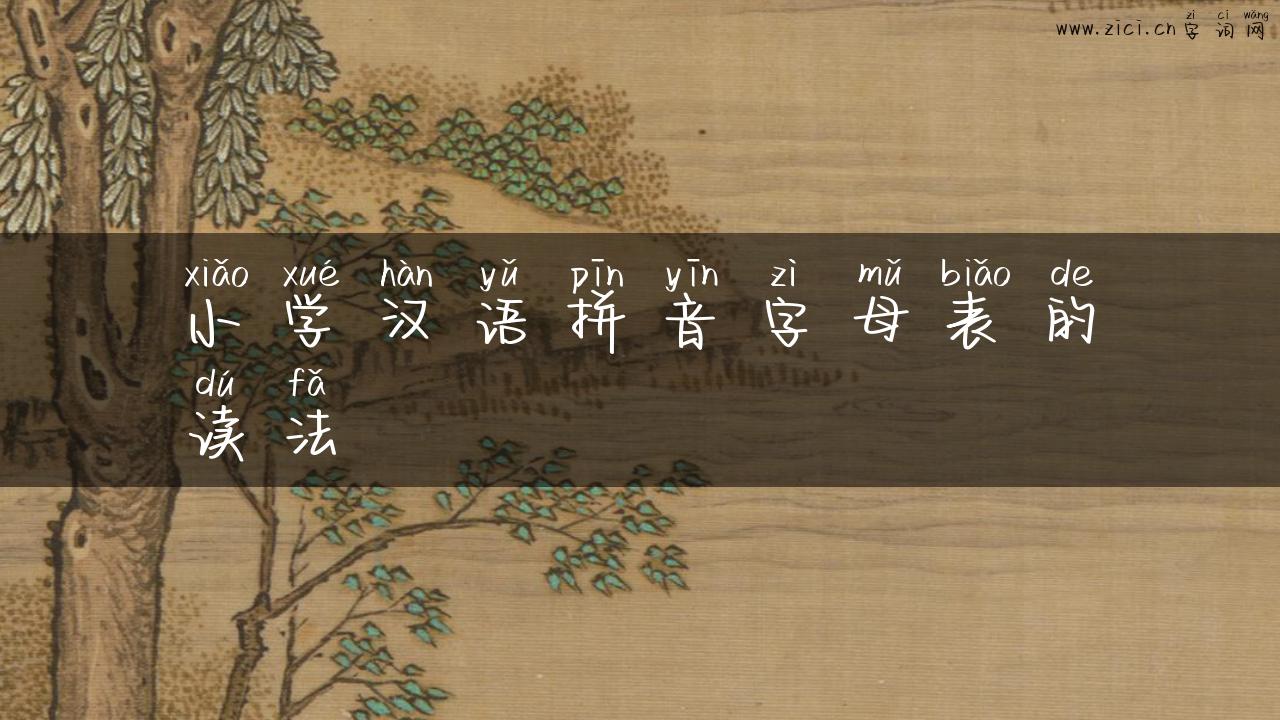 zì cí wǎng
www.zici.cn 字词网
xiǎo xué hàn yǔ pīn yīn zì mǔ biǎo de
小学汉语拼音字母表的
dú fǎ
读法